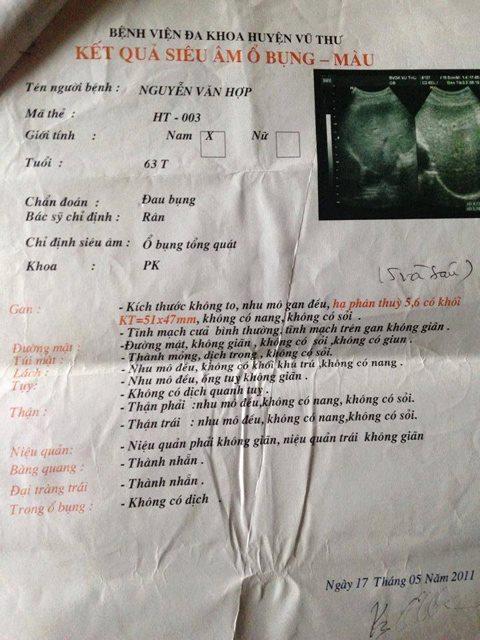 BỆNH VIỆN ĐA KHOA HUYỆN VŨ THƯ
KẾT QUẢ SIÊU ÂM Ổ BỤNG – MÀU
Tên người bệnh : NGUYỄN VĂN HỢP
Mã thẻ : HT - 003
Giới tính : Nam X Nữ
Tuổi : 63 T
Chẩn đoán : Đau bụng
Bác sỹ chỉ định : Rân
Chỉ định siêu âm : Ổ bụng tổng quát
Khoa : PK
Gan : - Kích thước không to, nhu mô gan đều, hạ phân thuỳ 5,6 có khối
KT=51x47mm, không có nang, không có sỏi .
- Tĩnh mạch cửa bình thường, tĩnh mạch trên gan không giãn .
Đường mật : -Đường mật, không giãn , không có sỏi ,không có giun .
Túi mật : - Thành mỏng, dịch trong , không có sỏi.
Lách : - Nhu mô đều, không có khối khu trú , không có nang .
Tuỵ: - Nhu mô đều, ống tuỵ không giãn .
- Không có dịch quanh tuỵ .
Thận : - Thận phải :nhu mô đều,không có nang, không có sỏi.
- Thận trái : nhu mô đều, không có nang,không có sỏi.
Niệu quản: - Niệu quản phải không giãn, niệu quản trái không giãn
Bàng quang : - Thành nhẵn .
Đại tràng trái - Thành nhẵn .
Trong ổ bụng : - Không có dịch .
Ngày 17 Tháng 05 Năm 2011